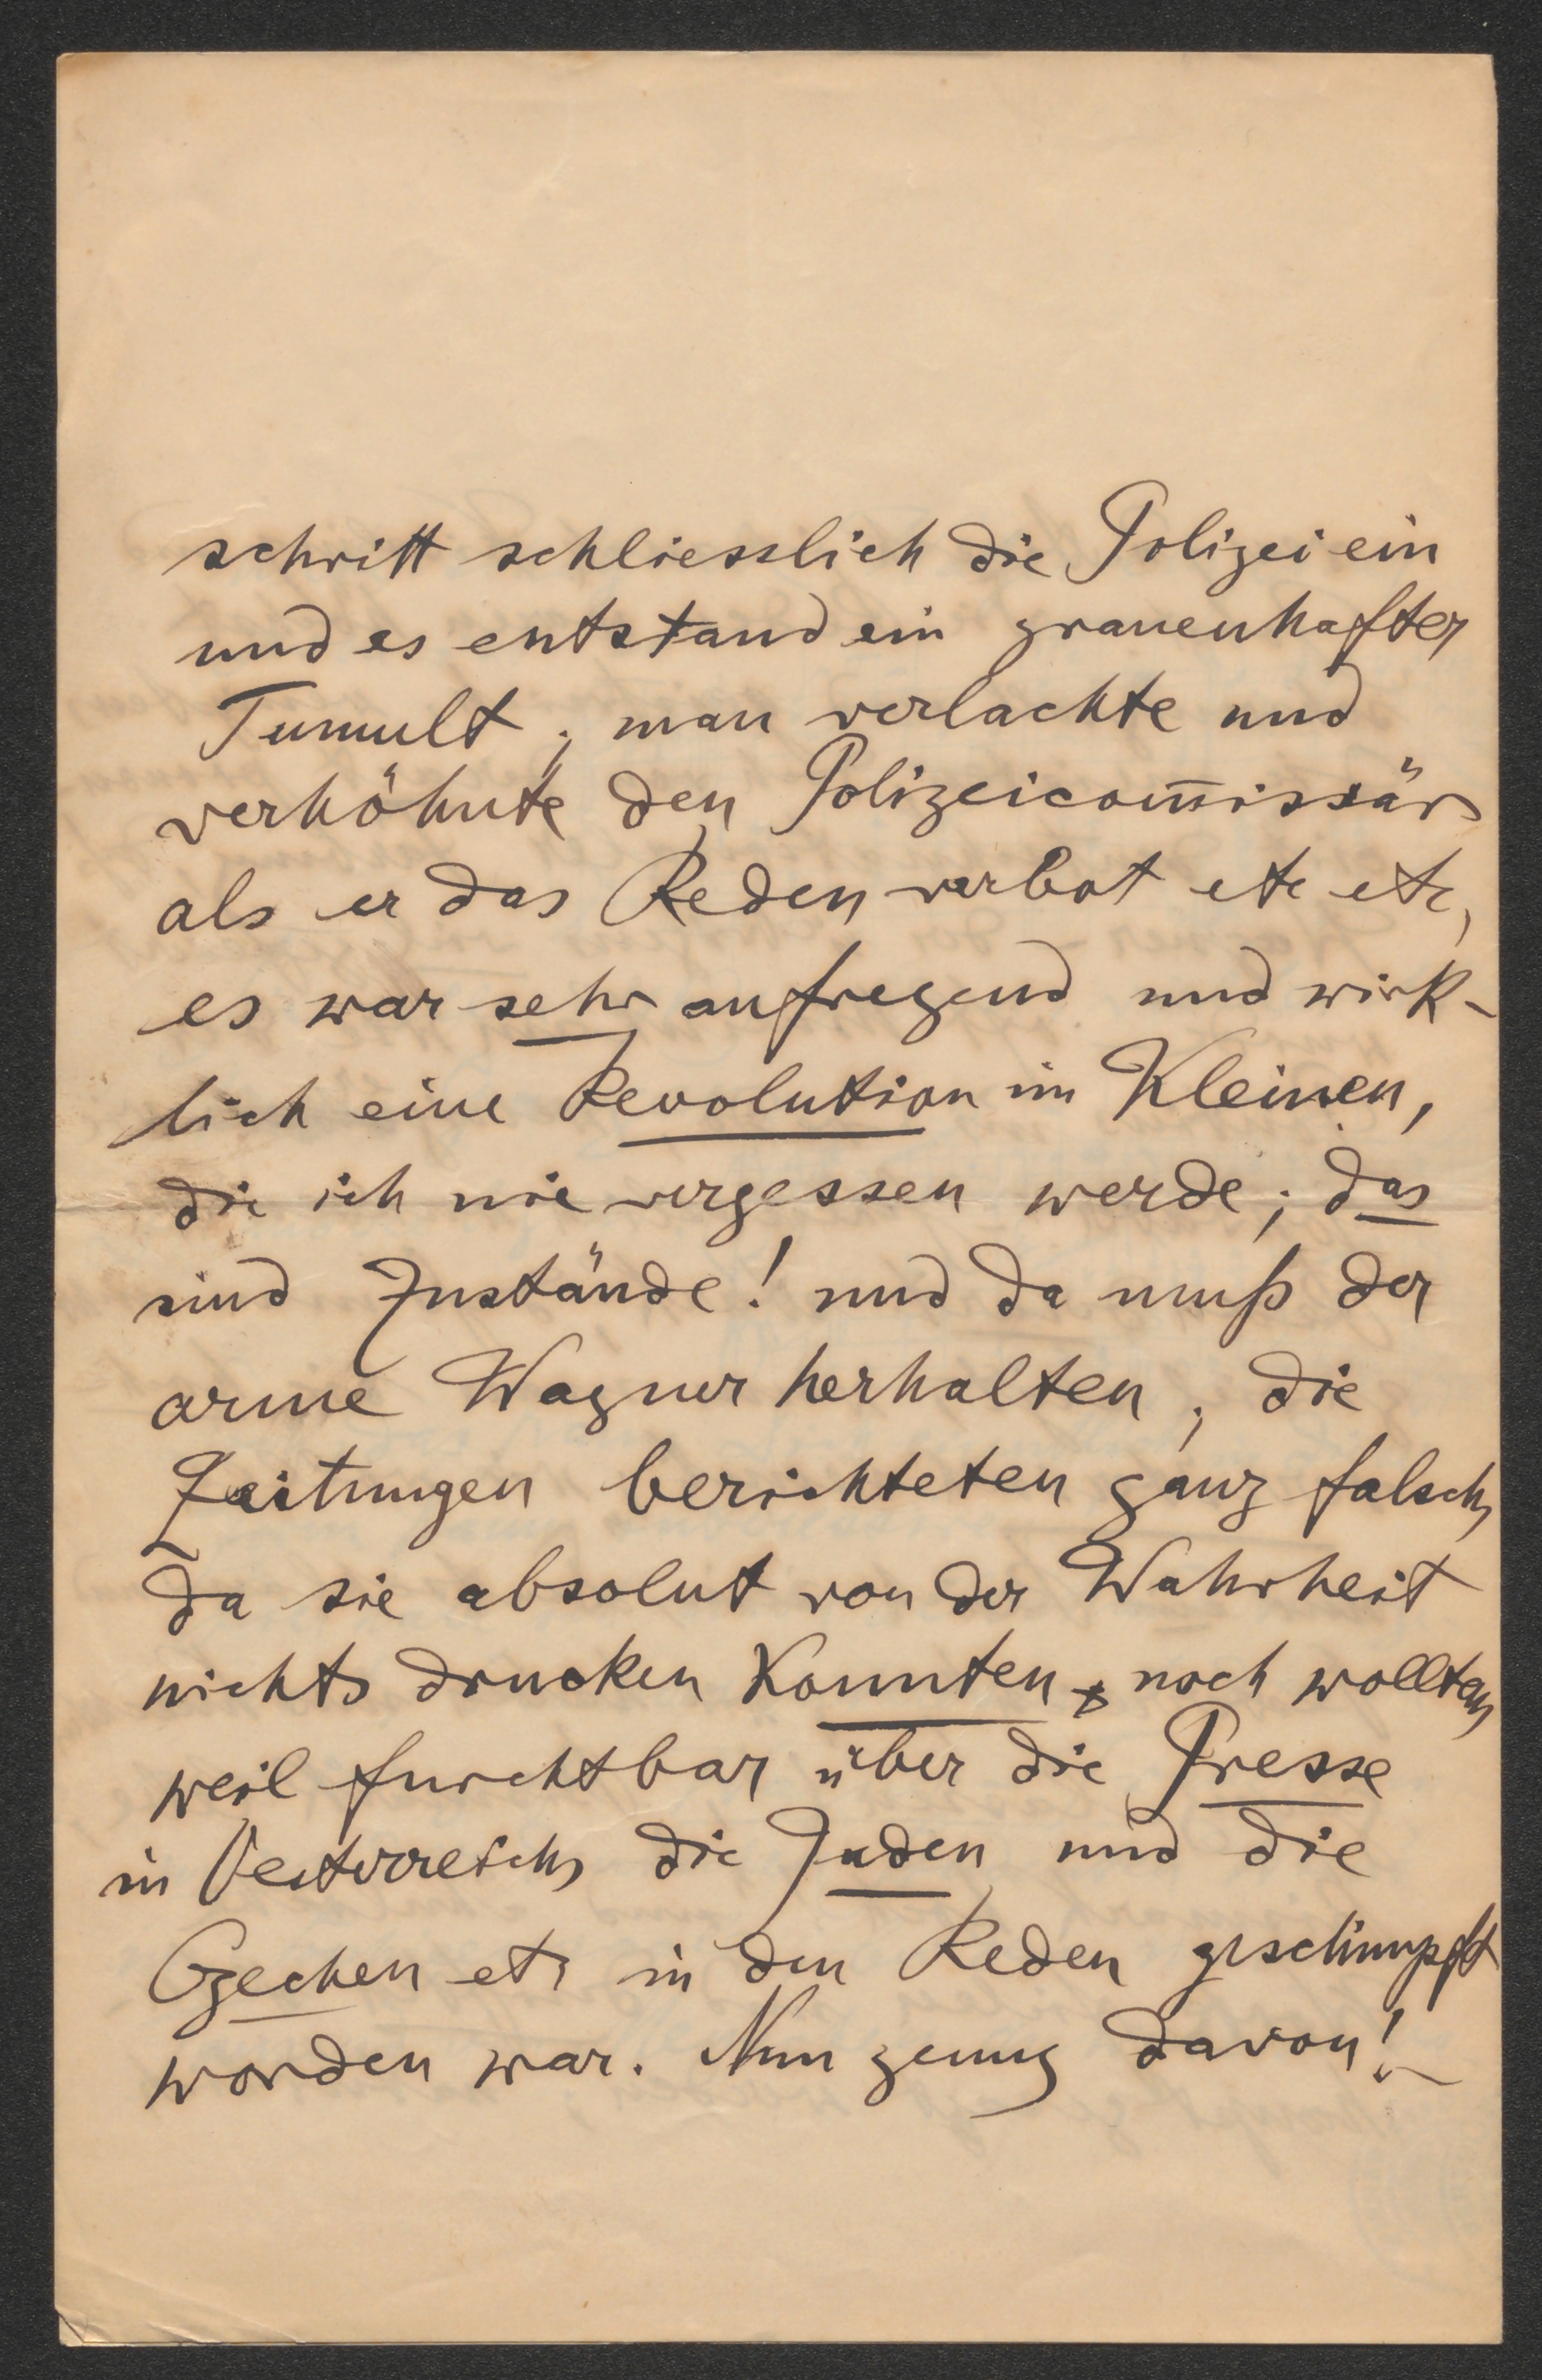 schritt schliesslich die Polizei ein
und es entstand ein grauenhafter
Tumult; man verlachte und
verhöhnte den Polizeicom̅issär
als er das Reden verbot etc etc,
es war sehr aufregend und wirk-
lich eine Revolution im Kleinen,
die ich nie vergessen werde; das
sind Zustände! und da muß der
arme Wagner herhalten; die
Zeitungen berichteten ganz falsch,
da sie absolut von der Wahrheit
nichts drucken konnten, noch wollten,
weil furchtbar über die Presse
in Oesterreich, die Juden und die
Czechen etc in den Reden geschimpft
worden war. Nun genug davon!–